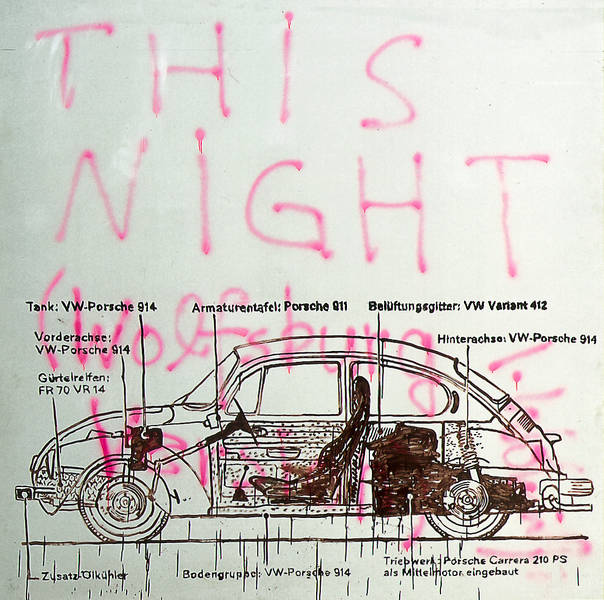 THIS
NIGHT
(Wolfsburg
Tank: VW-Porsche 914
Armaturentafel: Porsche 911
Belüftungsgitter: VW Variant 412
Vorderachse:
VW-Porsche 914
Hinterachse: VW-Porsche 914
Gürtelreifen:
FR 70 VR 14
Zusatz-Ölkühler
Bodengruppe: VW-Porsche 914
Triebwerk: Porsche Carrera 210 PS
als Mittelmotor eingebaut